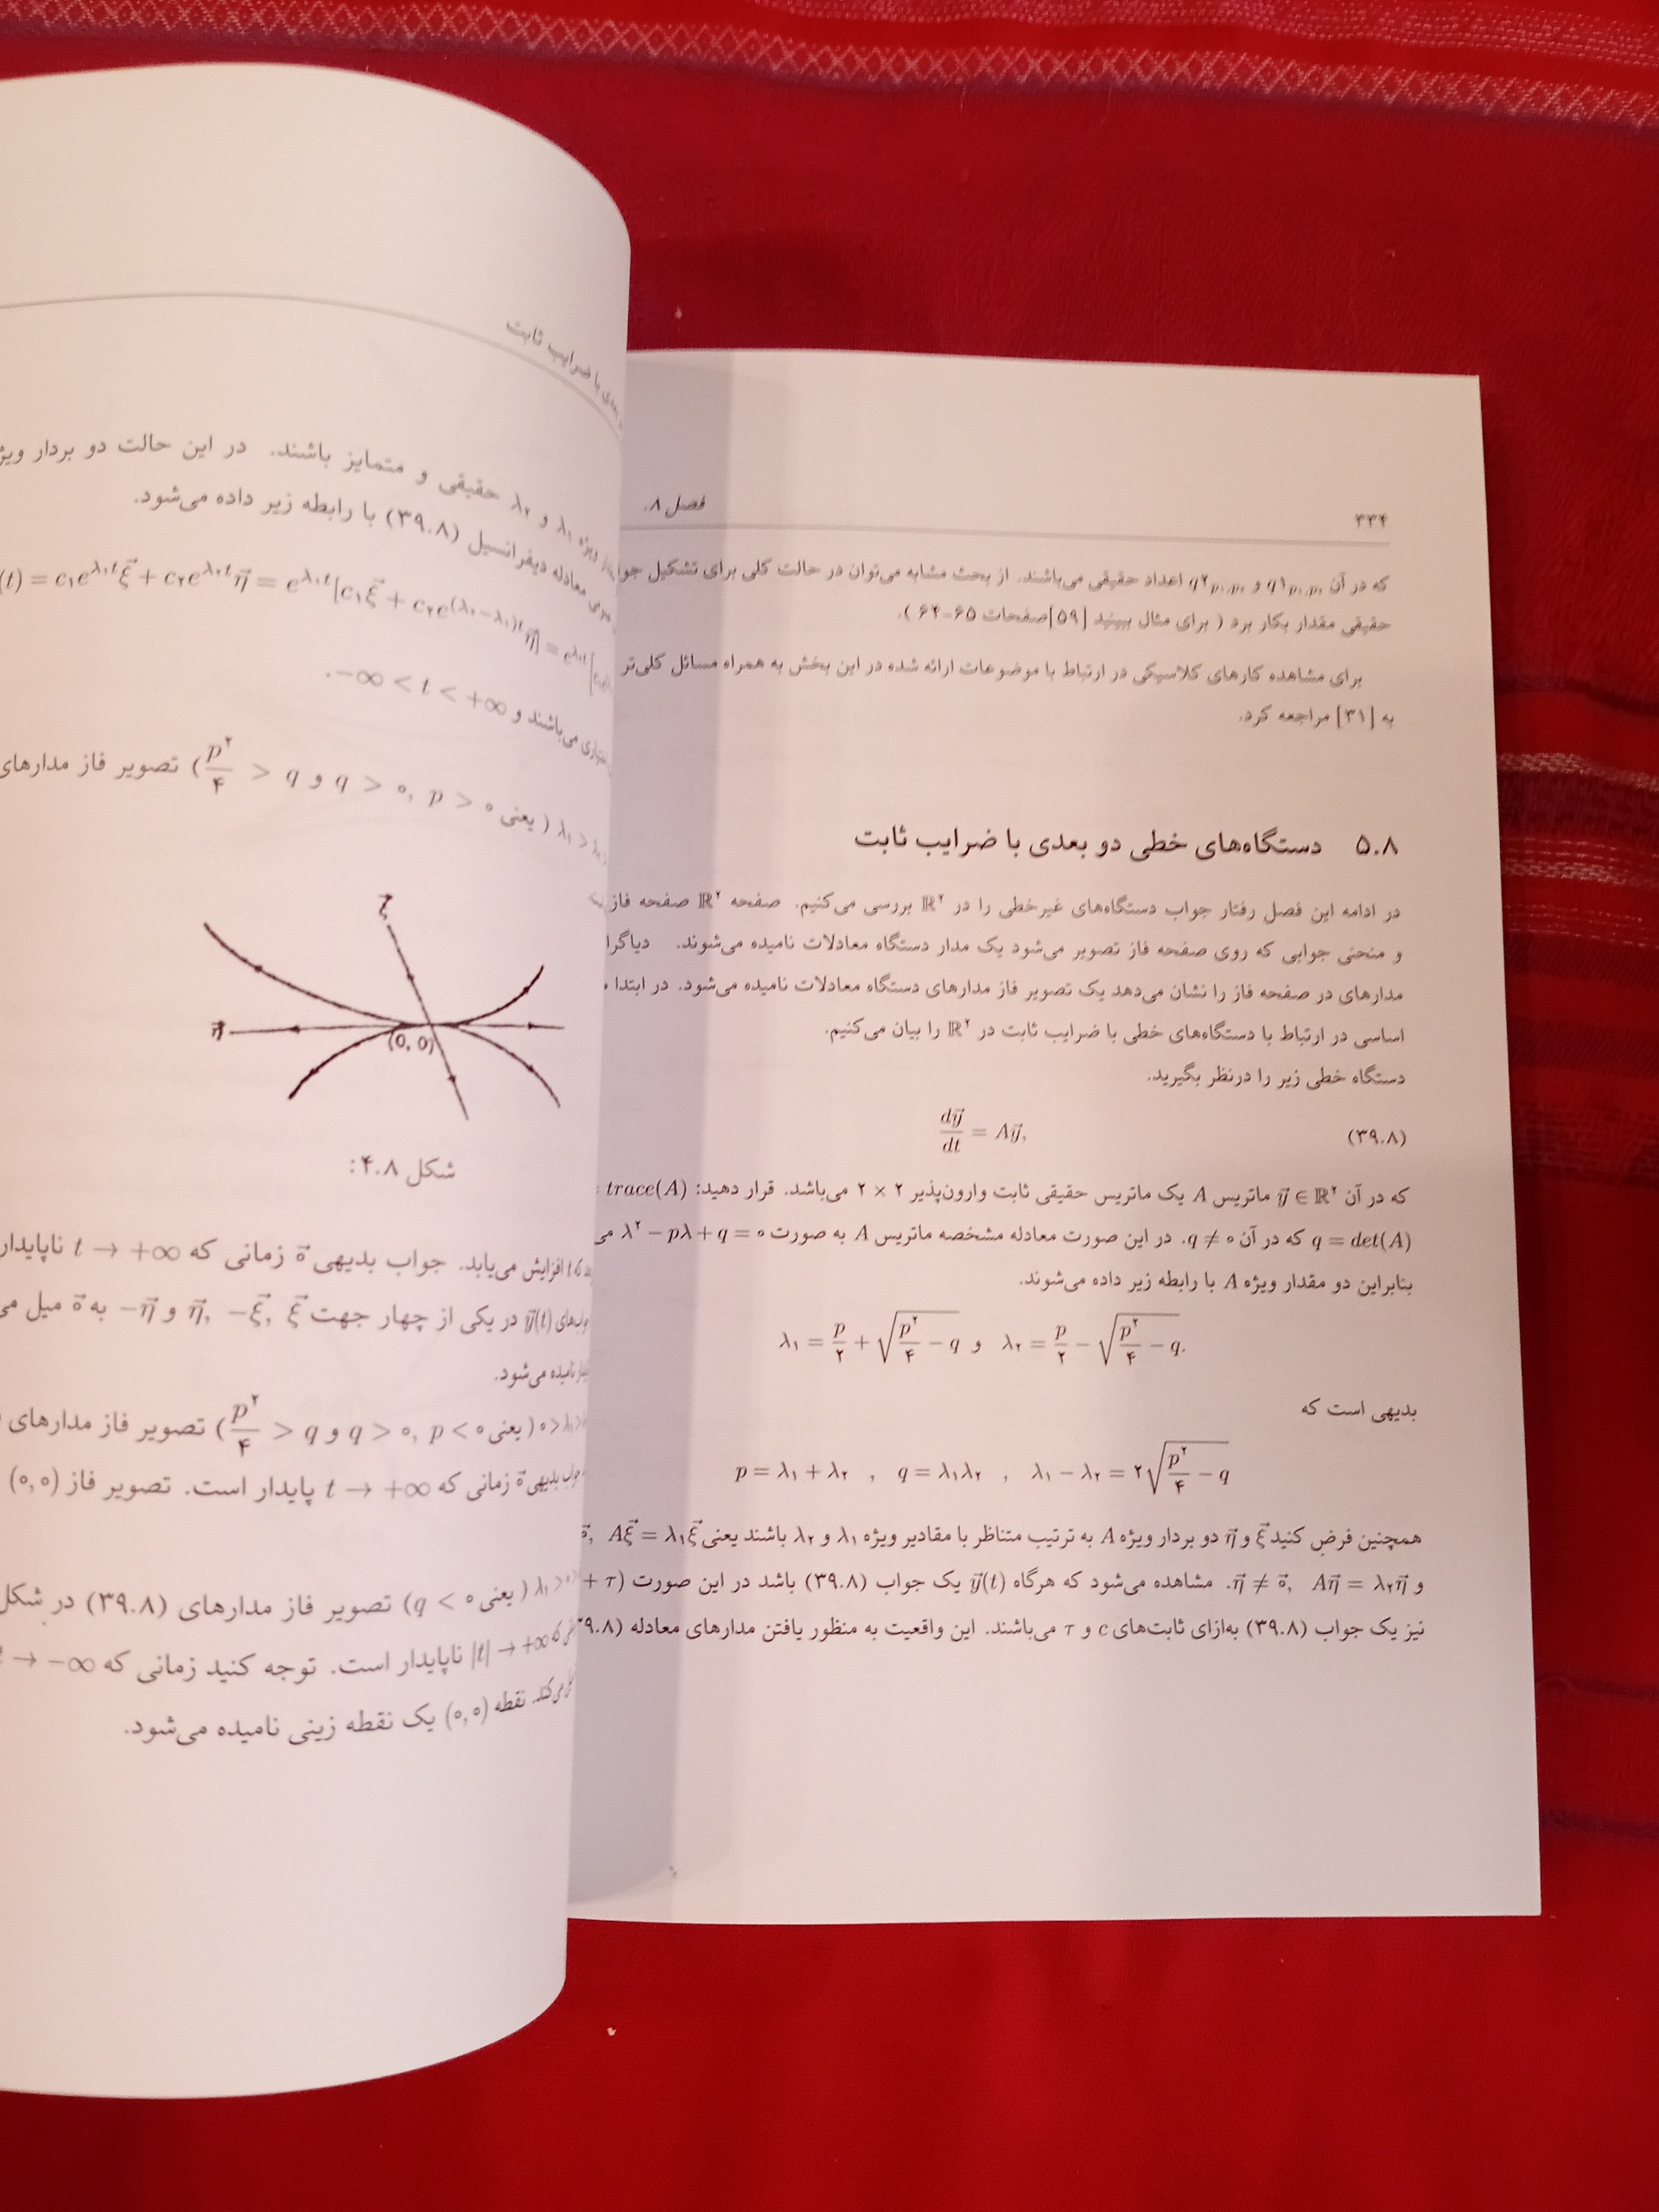 فصل ۸.
۳۳۴
که در آن q۱p۱,p۲ و q۲p۱,p۲ اعداد حقیقی می‌باشند. از بحث مشابه می‌توان در حالت کلی برای تشکیل
حقیقی مقدار بکار برد ( برای مثال ببینید [۵۹]صفحات ۶۵-۶۴ ).
برای مشاهده کارهای کلاسیکی در ارتباط با موضوعات ارائه شده در این بخش به همراه مسائل کلی‌تر
به [۳۱] مراجعه کرد.
۵.۸ دستگاه‌های خطی دو بعدی با ضرایب ثابت
در ادامه این فصل رفتار جواب دستگاه‌های غیرخطی را در ℝ^۲ بررسی می‌کنیم. صفحه ℝ^۲ صفحه فاز
و منحنی جوابی که روی صفحه فاز تصویر می‌شود یک مدار دستگاه معادلات نامیده می‌شوند.
مدارهای در صفحه فاز را نشان می‌دهد یک تصویر فاز مدارهای دستگاه معادلات نامیده می‌شود. در ابتدا
اساسی در ارتباط با دستگاه‌های خطی با ضرایب ثابت در ℝ^۲ را بیان می‌کنیم.
دستگاه خطی زیر را درنظر بگیرید.
(۳۹.۸) dy⃗/dt = Ay⃗,
که در آن y⃗ ∈ ℝ^۲ ماتریس A یک ماتریس حقیقی ثابت وارون‌پذیر ۲ × ۲ می‌باشد. قرار دهید: trace(A)
q = det(A) که در آن q ≠ ۰. در این صورت معادله مشخصه ماتریس A به صورت λ^۲ − pλ + q = ۰
بنابراین دو مقدار ویژه A با رابطه زیر داده می‌شوند.
λ۱ = p/۲ + √(p^۲/۴ − q) و λ۲ = p/۲ − √(p^۲/۴ − q).
بدیهی است که
p = λ۱ + λ۲ , q = λ۱λ۲ , λ۱ − λ۲ = ۲√(p^۲/۴ − q)
همچنین فرض کنید ξ⃗ و η⃗ دو بردار ویژه A به ترتیب متناظر با مقادیر ویژه λ۱ و λ۲ باشند یعنی Aξ⃗ = λ۱ξ⃗
و η⃗ ≠ ۰⃗, Aη⃗ = λ۲η⃗. مشاهده می‌شود که هرگاه y⃗(t) یک جواب (۳۹.۸) باشد در این صورت + τ)
نیز یک جواب (۳۹.۸) به‌ازای ثابت‌های c و τ می‌باشند. این واقعیت به منظور یافتن مدارهای معادله (۳۹.۸)
با ضرایب ثابت
ویژه λ۱ و λ۲ حقیقی و متمایز باشند. در این حالت دو بردار
معادله دیفرانسیل (۳۹.۸) با رابطه زیر داده می‌شود.
(t) = c۱e^{λ۱t}ξ⃗ + c۲e^{λ۲t}η⃗ = e^{λ۱t}[c۱ξ⃗ + c۲e^{(λ۲−λ۱)t}η⃗] = e^{λ۲t}
می‌باشند و −∞ < t < +∞.
(یعنی p > ۰, q > ۰ و p^۲/۴ > q) تصویر فاز مدارهای
ξ⃗
η⃗
(0, 0)
شکل ۴.۸:
افزایش می‌یابد. جواب بدیهی ۰⃗ زمانی که t → +∞ ناپایدار
y⃗(t) در یکی از چهار جهت ξ⃗, −ξ⃗, η⃗ و −η⃗ به ۰⃗ میل
نامیده می‌شود.
(یعنی p < ۰, q > ۰ و p^۲/۴ > q) تصویر فاز مدارهای
جواب بدیهی ۰⃗ زمانی که t → +∞ پایدار است. تصویر فاز (۰,۰)
(یعنی q < ۰) تصویر فاز مدارهای (۳۹.۸) در شکل
|t| → +∞ ناپایدار است. توجه کنید زمانی که t → −∞
نقطه (۰,۰) یک نقطه زینی نامیده می‌شود.